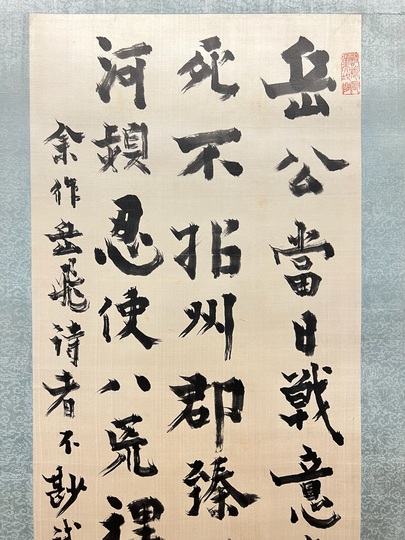 岳公當日戰意
死不州郡臻
河忍使八荒
余作岳飛詩者不尠